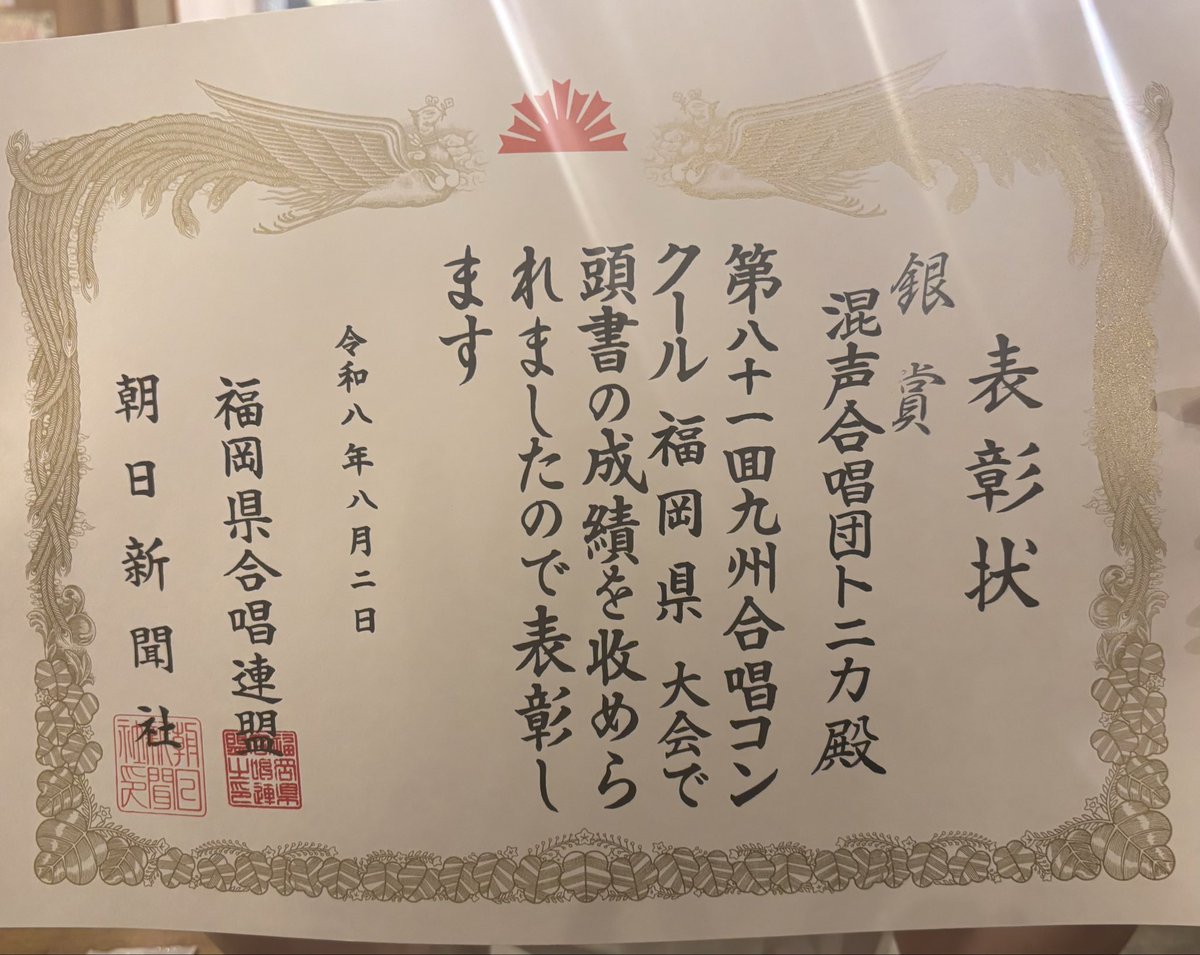 表彰状
銀賞
混声合唱団トニカ殿
第八十一回九州合唱コン
クール 福岡県 大会で
頭書の成績を収めら
れましたので表彰し
ます
令和八年八月二日
福岡県合唱連盟
朝日新聞社